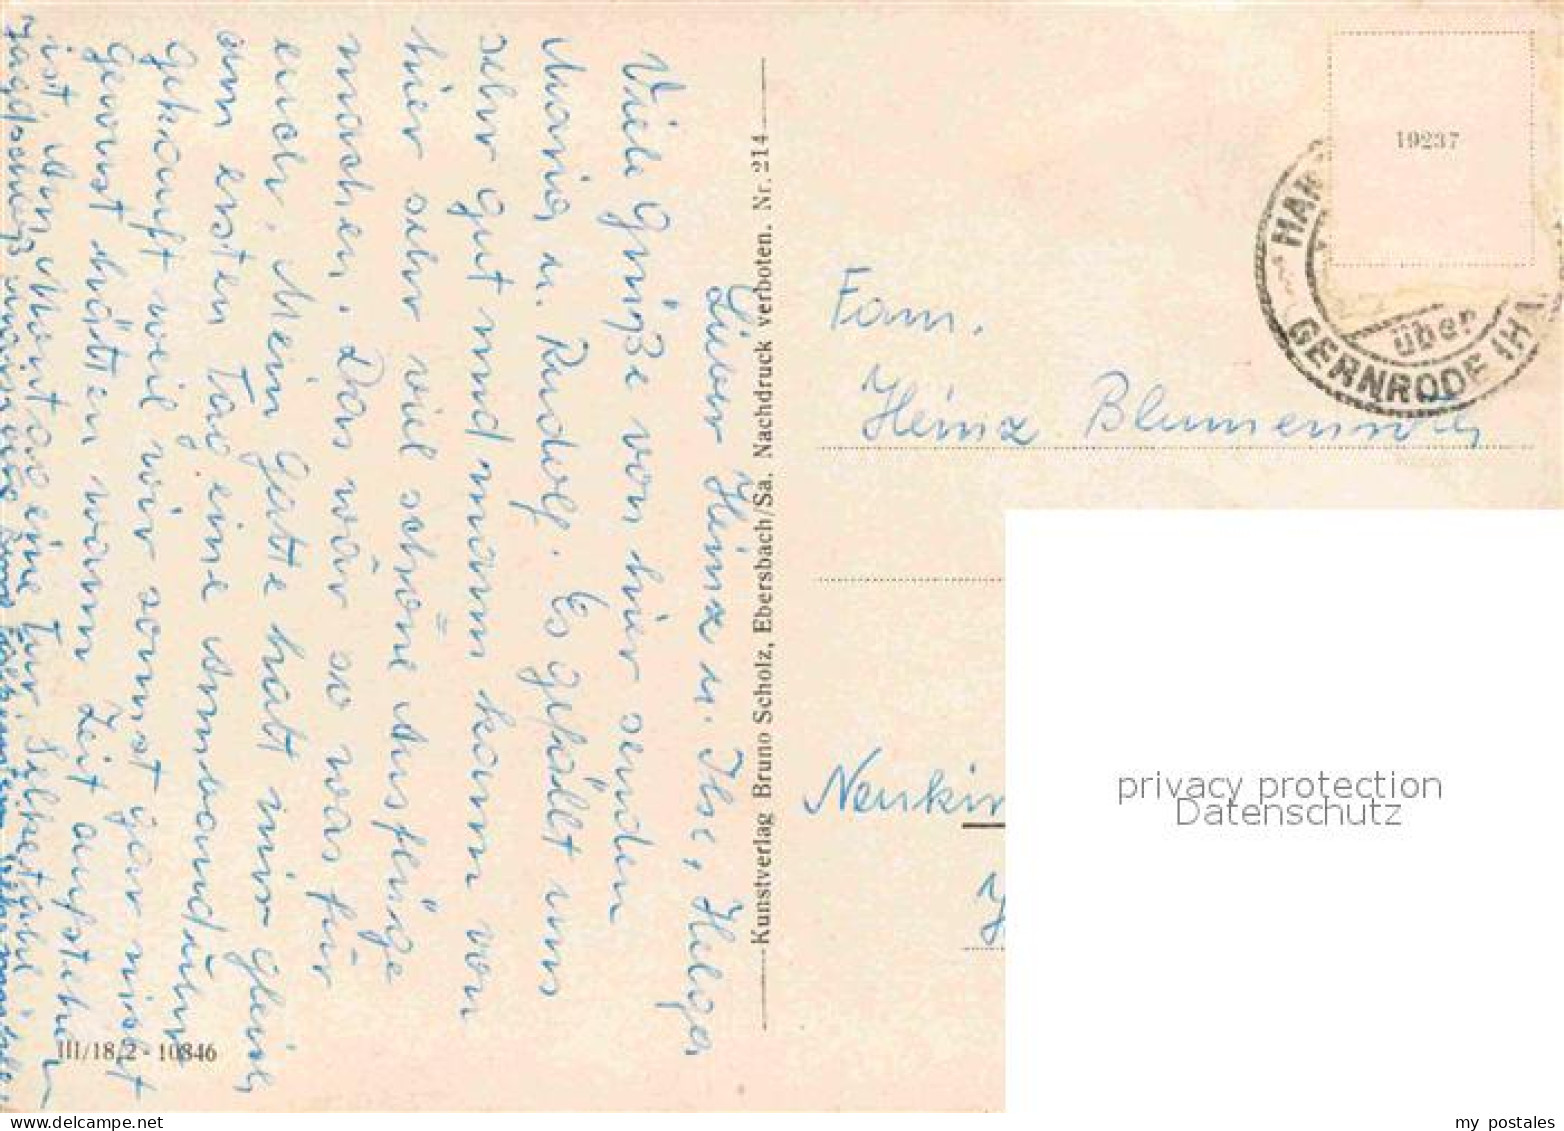 Lieber Heinz u. Ilse, Helga
Viele Grüße von hier senden
Maria u. Rudolf. Es gefällt uns
sehr gut und man kann von
hier sehr viel schöne Ausflüge
machen. Das wär so was für
euch. Mein Gatte hat mir gleich
am ersten Tag eine Armbanduhr
gekauft weil wir sonst gar nicht
gewusst hätten wann Zeit aufstehen
ist. Am Montag eine Tour
Kunstverlag Bruno Scholz, Ebersbach/Sa. Nachdruck verboten. Nr. 214
III/18/2 - 10846
19237
über
GERNRODE (H
Fam.
Heinz
Neukir
privacy protection
Datenschutz
my postales